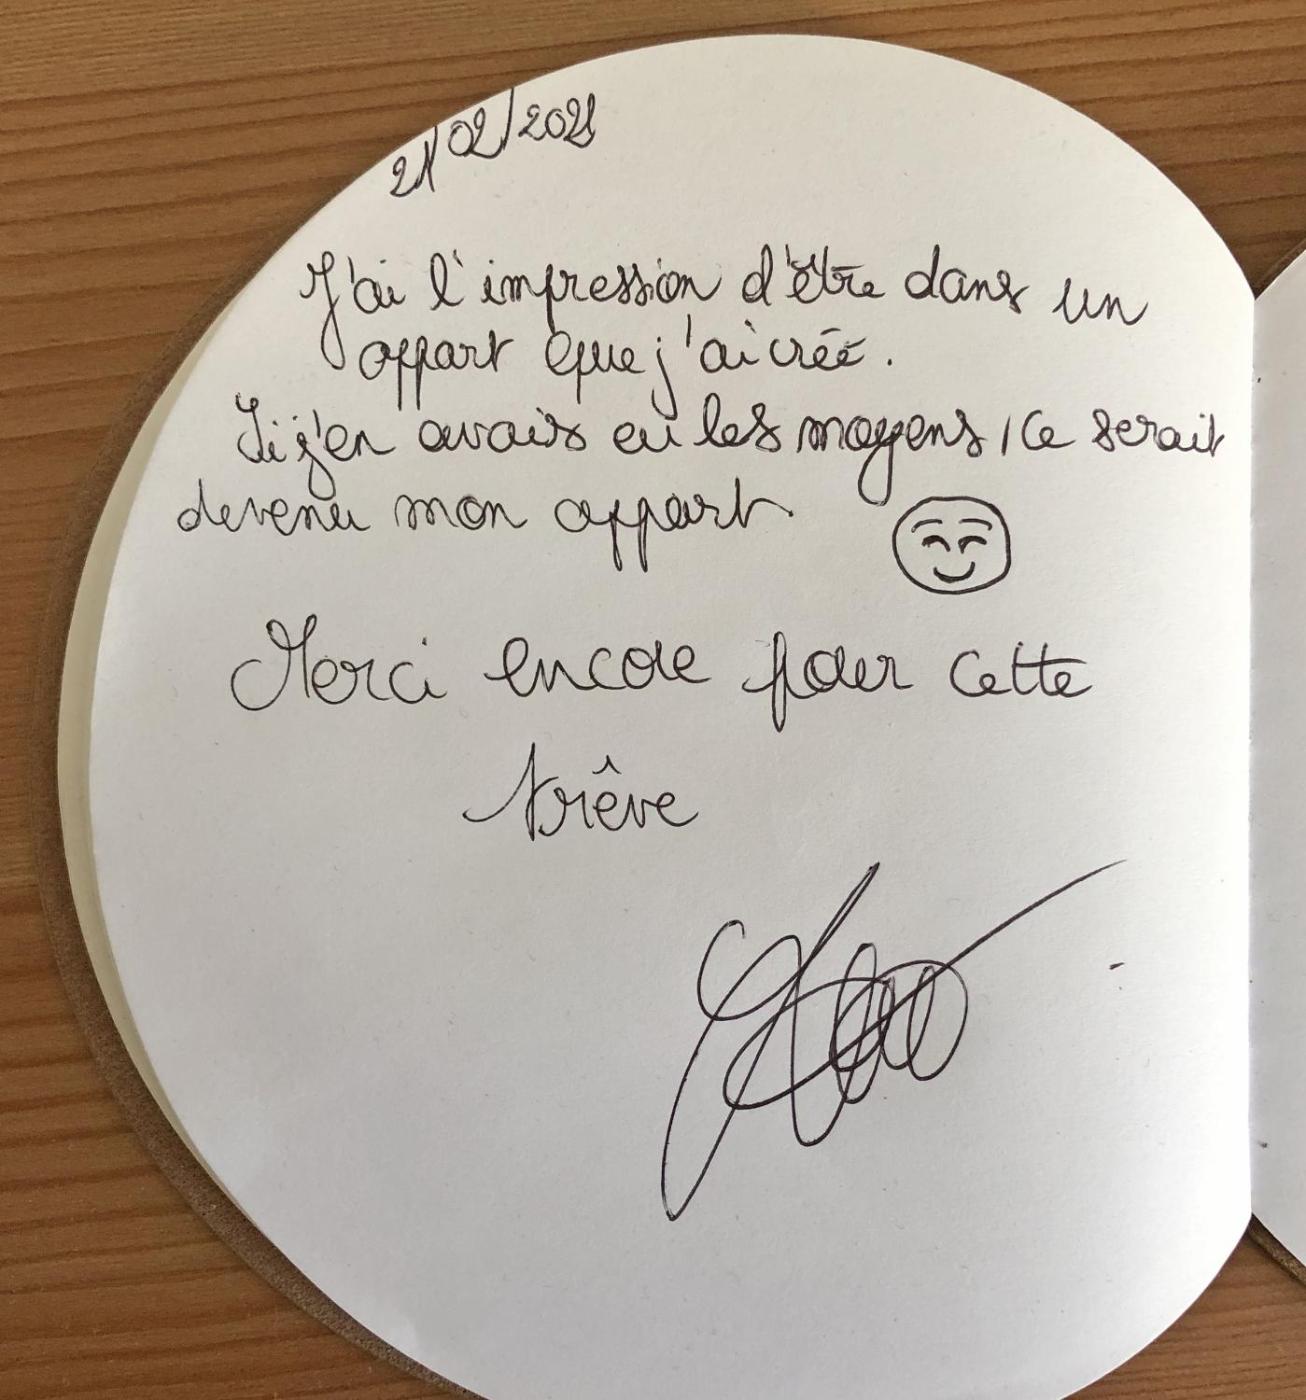 21/02/2021
J'ai l'impression d'être dans un
appart que j'ai créé.
Si j'en avais eu les moyens, ce serait
devenu mon appart.
Merci encore pour cette
trêve